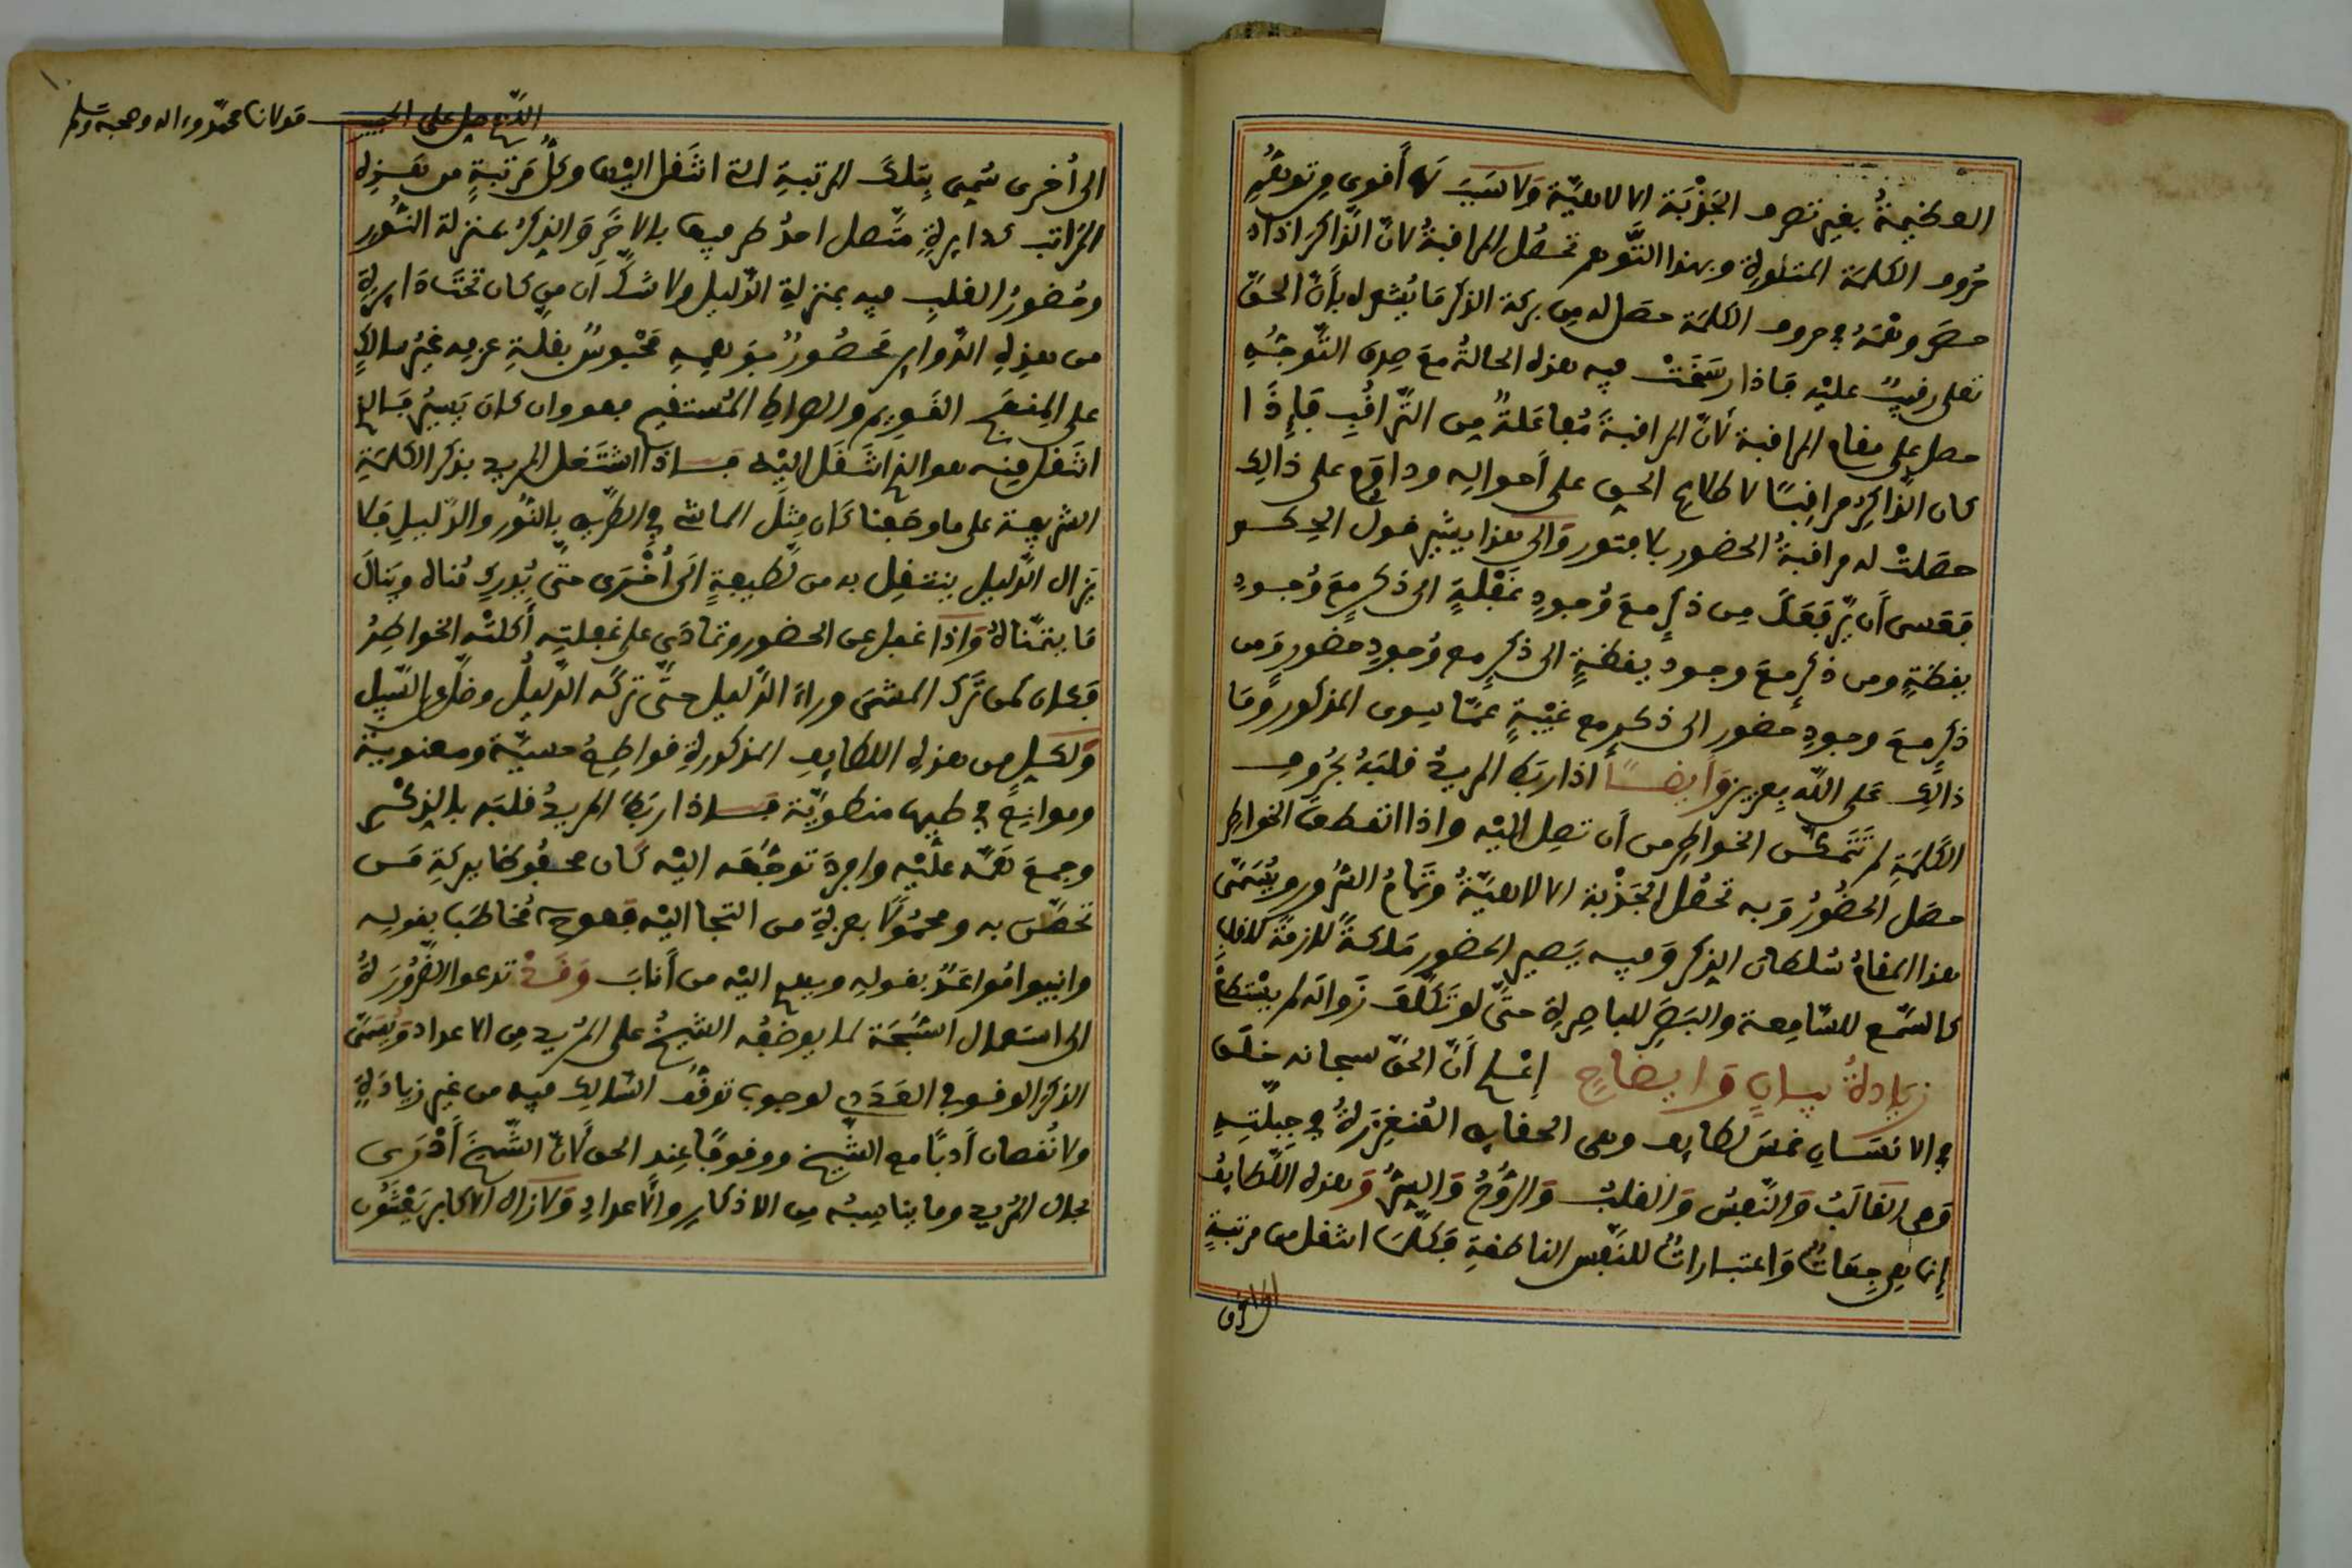 العظيمةُ بغير تصرف الجَذْبَة الالاهيّة وَلا سَبَبَ لها أقوى من توهّمِ
حُروف الكلمة المتلوة وبهذا التّوهم تحصُل المراقبةُ لانّ الذّاكر اذا
حصَر وهْمَهُ في حروف الكلمة حصل له مِن بركة الذكر مَا يُشعره بأَنّ الحقّ
تعلى رقيبٌ عليْه فاذا رسَخَتْ فيه هذه الحالةُ مَعَ صِدق التّوجّهِ
حصل على مقام المراقبة لانّ المراقبةَ مُفاعَلةٌ مِن التّراقُبِ فَإِذَا
كان الذّاكِرُ مراقِبًا لاطلاع الحق على أحوالِه وداوَم على ذالِك
حصَلتْ له مراقبةُ الحضور بلا فتور وَالى هذا يشير قول الحِكـم
فعَسى أن يّرفعَكَ مِن ذكرٍ معَ وُجودِ غَفْلَةٍ الى ذكرٍ معَ وُجودِ
يقظةٍ ومن ذكرٍ معَ وجود يقظةٍ الى ذكرٍ مع وُجودِ حضور وَمن
ذكرٍ معَ وجودِ حضور الى ذكرٍ مع غَيْبَةٍ عمّا سِوى المذكور وَمَا
ذالِك عَلى اللّه بِعزيز وَأيضًــا اذا ربَط المريدُ قلبَهُ بحُروف
الكَلمَةِ لم تَتَمكّن الخواطِر من أن تصِل اليْه واذا انقطعَت الخواطِر
حصَل الحضُورُ وَبه تحصُل الجَذْبة الالاهيّةُ وتَمامُ السّرور ويُسَمّى
هذا المقامُ سُلطان الذِكر وَفيه يَصير الحضور مَلَكَةً لازمةً للقلبِ
كالسّمْع للسّامِعة والبَصَرِ للباصِرةِ حتّى لو تَكلّفَ زَوالَه لم يسْتطعْ
زيادةُ بيــانٍ وَايضاحٍ إعْلـم أَنّ الحقّ سبحانه خلَق
في الانسَـانِ خمسَ لطايف وهى الحقايق المُنغرِزةُ في جِبِلّتِهِ
وَهى القالَبُ وَالنّفسُ وَالقلبُ وَالرُّوحُ وَالسِرُّ وَهذه اللّطايفُ
إنما هى جِهَاتٌ وَاعتبـاراتٌ للنّفْس الناطقةِ فكلّمـا انتقل من مرتبةٍ
الى اخرى
اللهم صل على الحبيب مولانا محمّد وءاله وصحبه وسلم
الى أُخرى سُمِي بِتلكَ المرتبةِ التي انتَقل اليْها وكلُّ مَرتبةٍ من هَـذِه
المَراتب كدايرةٍ متّصل احدُ طرفيها بالاخَر وَالذِكرُ بمنزلة النُّور
وحُضورُ القلبِ فيه بمنزلةِ الدّليل ولا شكّ أن من كان تحتَ دايرةٍ
من هذِهِ الدّواير مَحصُورٌ بوَهمِهِ مَحْبوسٌ بغلبةِ عزمه غيرُ سالكٍ
على المنهَج القَوِيم والصراطِ المُستقيم فهو وان كان يَسيرُ فَالذي
انتَقل مِنه هو الذي انتَقَل اليْه فـاذا اشتَغل المريد بذكر الكلمَةِ
الشريفة على ما وصَفنا كان مِثلَ الماشي في الطّريق بالنُّور والدّليلِ فلا
يَزال الدّليل ينتقِل به من لّطيفةٍ الى أُخْـرى حتّى يُدرِك مُناه ويَنالَ
مَا يتمنّاهُ وَإذا غفل عن الحضور وتمادَى على غفلتِه أكلتْه الخواطِرُ
فكان كمن تّرك المشَى وراءَ الدّليل حتّى تركه الدّليلُ وضلّ عن السّبيل
وَلكـلٍ من هذِه اللطايف المذكورةِ قواطِعُ حسيّة ومعنوية
وموانِع في طيها منطويّة فـاذا ربَط المريدُ قلبَه بالذِكْـر
وجمعَ هَمّه عليْه وافردَ توجّهَه اليْه كان محفُوظا ببركةِ مَـن
تحصّنَ به ومحمُولاً بعزةِ من التجا اليْه فهو مُخاطَب بقوله
وانيبوا مُواعَدٌ بقولِه ويهدي اليْه من أنابَ وَقَــدْ تدعوا الضّرُورَةُ
الى استعمال السُّبْحَة لما يوظِفُه الشيخُ على المُريد مِن الاعداد وَيُسَمّى
الذكر الوقـوف العَدَدي لوجوب توقّف السّالِك فيه من غير زيادَةٍ
ولا نُقصان أدبًا مع الشّيخ ووقوفًا عِند الحد لأنّ الشّيخَ أدْرَى
بحال المُريد وما يناسِبُه مِن الاذكارِ والأعدادِ وَلا زال الاكابر يَعْتَنُون